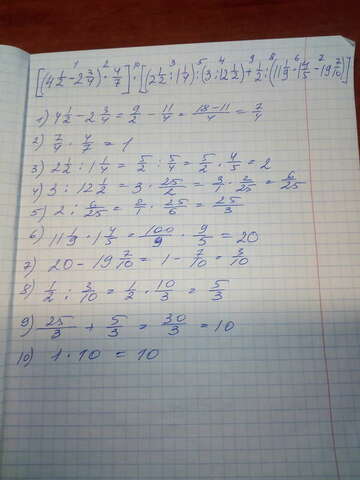 [(4 1/2 - 2 3/4) · 4/7] · [(2 1/2 : 1 1/4) : (3 : 12 1/2) + 1/2 : (11 1/9 · 1 4/5 - 19 7/10)]
1) 4 1/2 - 2 3/4 = 9/2 - 11/4 = 18-11/4 = 7/4
2) 7/4 · 4/7 = 1
3) 2 1/2 : 1 1/4 = 5/2 : 5/4 = 5/2 · 4/5 = 2
4) 3 : 12 1/2 = 3 · 25/2 = 3/1 · 2/25 = 6/25
5) 2 : 6/25 = 2/1 · 25/6 = 25/3
6) 11 1/9 · 1 4/5 = 100/9 · 9/5 = 20
7) 20 - 19 7/10 = 1 - 7/10 = 3/10
8) 1/2 : 3/10 = 1/2 · 10/3 = 5/3
9) 25/3 + 5/3 = 30/3 = 10
10) 1 · 10 = 10